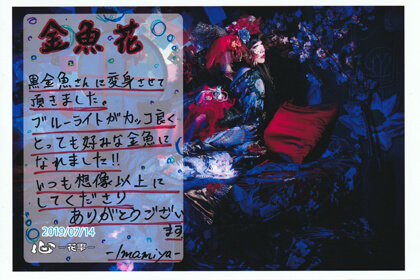 金魚花
黒金魚さんに変身させて
頂きました。
ブルーライトがカッコ良く、
とっても好みな金魚に
なれました!!
いつも想像以上に
してくださり
ありがとうござい
ます
-Imamiya-
2019/07/14
心 -花雫-